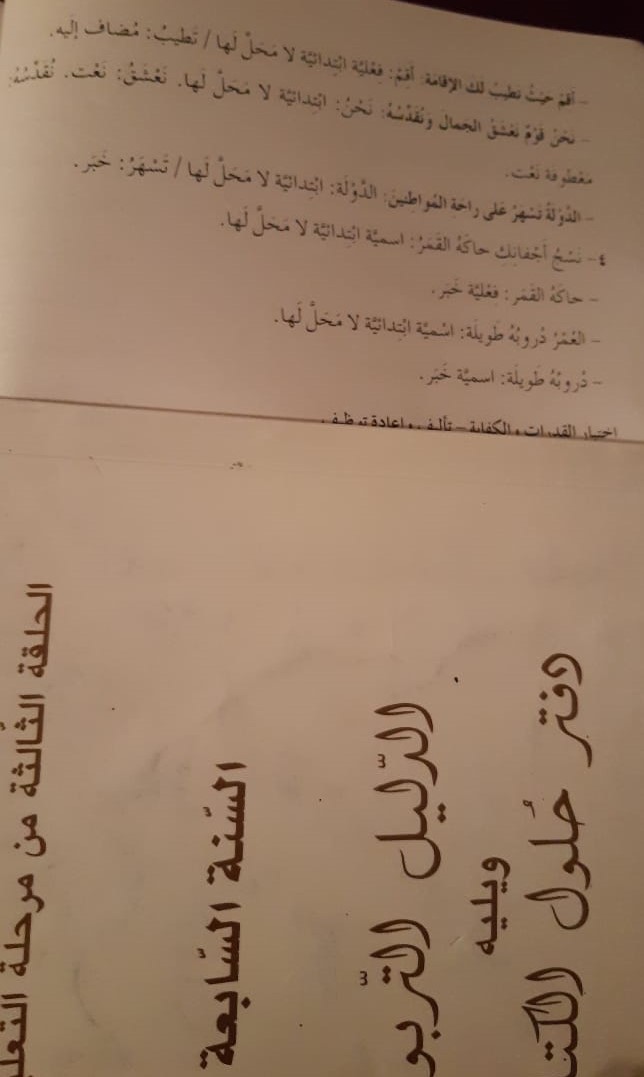 - أَقِمْ حَيْثُ تَطيبُ لَكَ الإقامَة: أَقِمْ: فِعْليَّة ابْتِدائيَّة لا مَحَلَّ لَها / تَطيبُ: مُضاف إلَيه.
- نَحْنُ قَوْمٌ نَعْشَقُ الجَمالَ وَنُقَدِّسُهُ: نَحْنُ: ابْتِدائيَّة لا مَحَلَّ لَها. نَعْشَقُ: نَعْت. نُقَدِّسُهُ:
مَعْطوفة نَعْت.
- الدَّوْلَةُ تَسْهَرُ عَلى راحَةِ المُواطِنينَ: الدَّوْلَة: ابْتِدائيَّة لا مَحَلَّ لَها / تَسْهَرُ: خَبَر.
٤- نَسْجُ أَجْفانِكِ حاكَهُ القَمَرُ: اسميَّة ابْتِدائيَّة لا مَحَلَّ لَها.
- حاكَهُ القَمَر: فِعْليَّة خَبَر.
- العُمْرُ دُروبُهُ طَويلَة: اسْمِيَّة ابْتِدائيَّة لا مَحَلَّ لَها.
- دُروبُهُ طَويلَة: اسميَّة خَبَر.
اختبار القدرات والكفاية – تأليف وإعادة توظيف
دفتر حُلول الكتا
ويليه
الدّليل التّربو
السّنة السّابعة
الحلقة الثّالثة من مرحلة التعلي